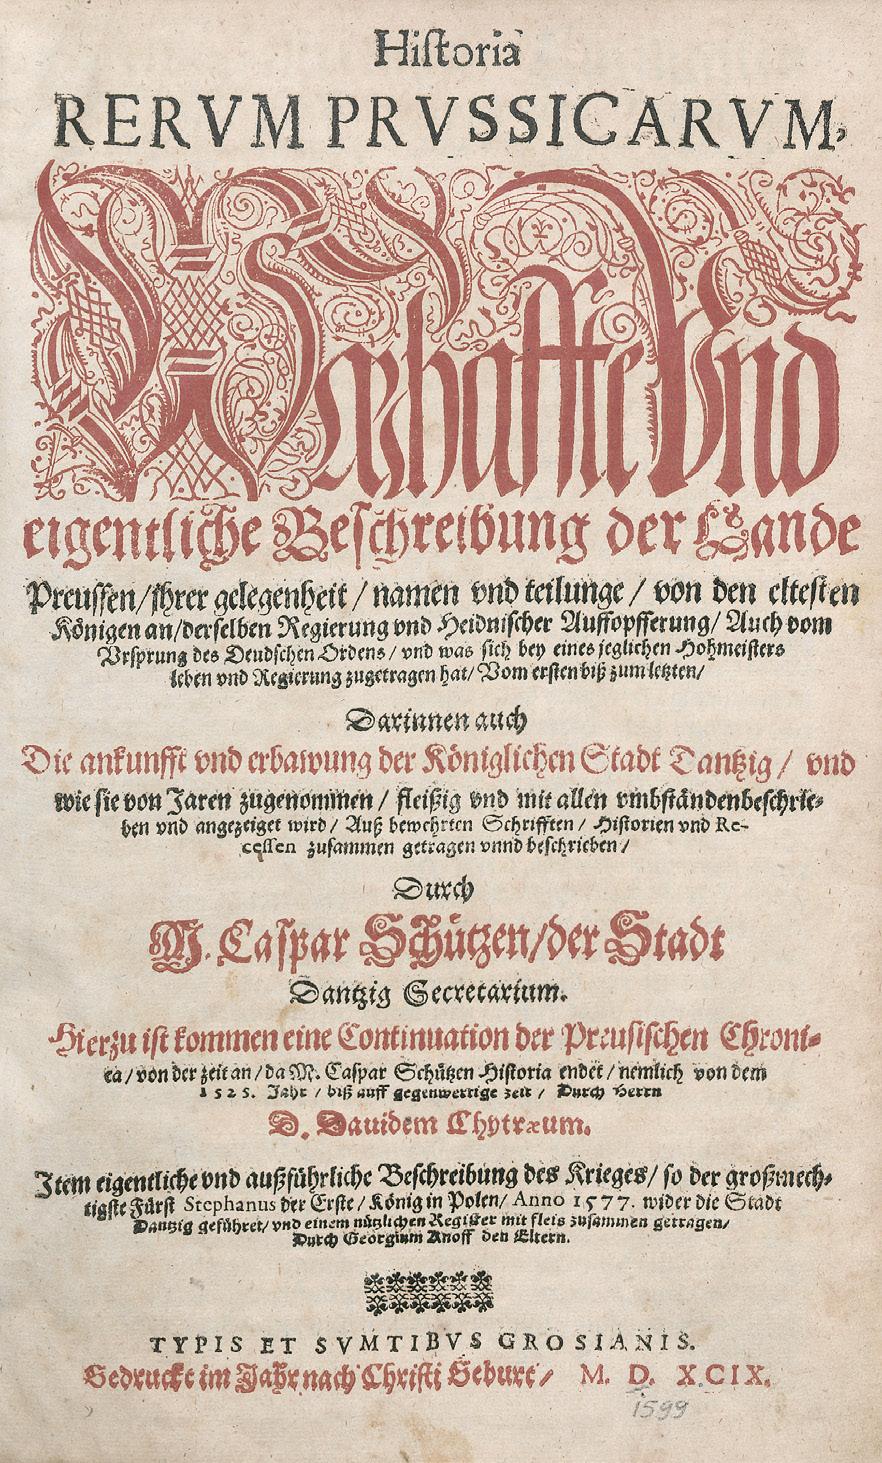 Hiſtoria
RERVM PRVSSICARVM,
Warhaffte Vnd
eigentliche Beſchreibung der Lande
Preuſſen/ jhrer gelegenheit / namen vnd teilunge / von den elteſten
Königen an/ derſelben Regierung vnd Heidniſcher Auffopfferung/ Auch vom
Vrſprung des Deudſchen Ordens / vnd was ſich bey eines jeglichen Hohmeiſters
leben vnd Regierung zugetragen hat/ Vom erſten biß zum letzten/
Darinnen auch
Die ankunfft vnd erbawung der Königlichen Stadt Dantzig / vnd
wie ſie von Jaren zugenommen / fleißig vnd mit allen vmbſtänden beſchrie-
ben vnd angezeiget wird / Auß bewehrten Schrifften / Hiſtorien vnd Re-
ceſſen zuſammen getragen vnnd beſchrieben /
Durch
M. Caſpar Schützen/ der Stadt
Dantzig Secretarium.
Hierzu iſt kommen eine Continuation der Preuſiſchen Chroni-
ca / von der zeit an / da M. Caſpar Schützen Hiſtoria endet / nemlich von dem
1525. Jahr / biß auff gegenwertige zeit / Durch Herrn
D. Dauidem Chytræum.
Item eigentliche vnd außführliche Beſchreibung des Krieges/ ſo der großmech-
tigſte Fürſt Stephanus der Erſte / König in Polen/ Anno 1577. wider die Stadt
Dantzig geführet/ vnd einem nützlichen Regiſter mit fleis zuſammen getragen/
Durch Georgium Knoff den Eltern.
TYPIS ET SVMTIBVS GROSIANIS.
Gedruckt im Jahr nach Chriſti Geburt / M. D. XCIX.
1599